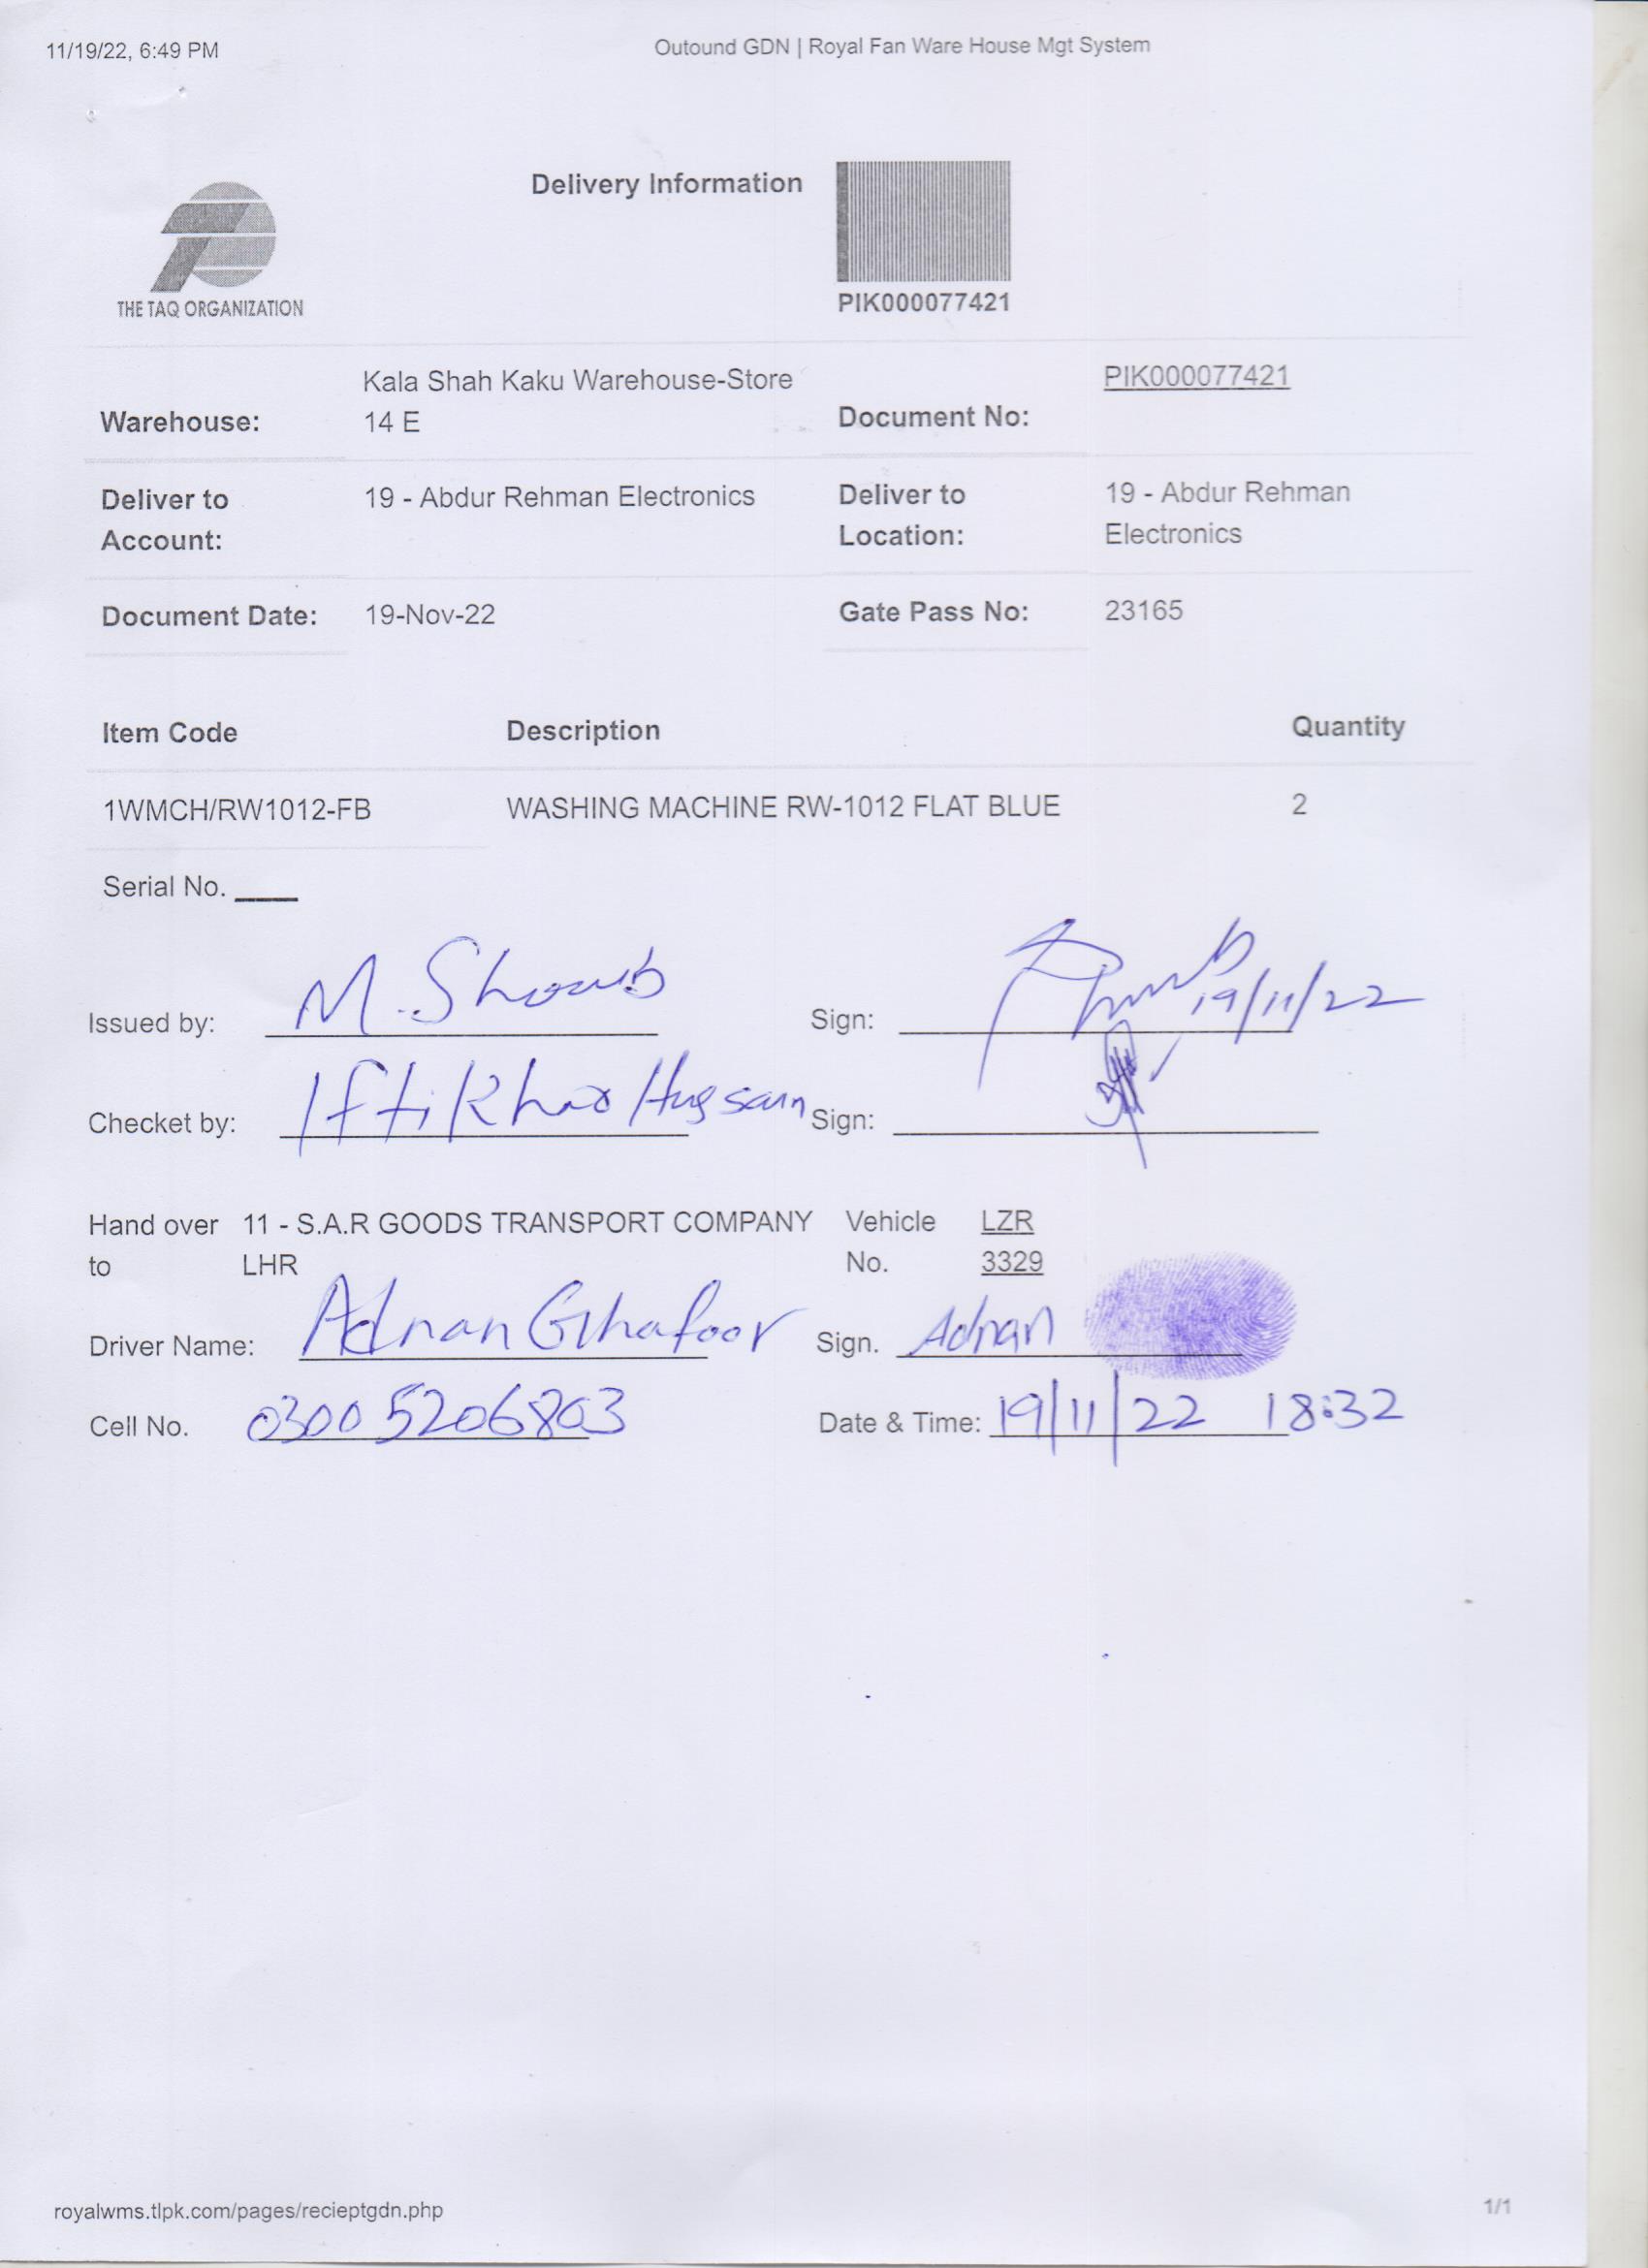 11/19/22, 6:49 PM
Outound GDN | Royal Fan Ware House Mgt System
Delivery Information
THE TAQ ORGANIZATION
PIK000077421
Kala Shah Kaku Warehouse-Store
PIK000077421
Warehouse: 14 E Document No:
Deliver to 19 - Abdur Rehman Electronics Deliver to 19 - Abdur Rehman
Account: Location: Electronics
Document Date: 19-Nov-22 Gate Pass No: 23165
Item Code Description Quantity
1WMCH/RW1012-FB WASHING MACHINE RW-1012 FLAT BLUE 2
Serial No.
Issued by: M. Shoaib Sign: 19/11/22
Checket by: Iftikhar Hussain Sign:
Hand over 11 - S.A.R GOODS TRANSPORT COMPANY Vehicle LZR
to LHR No. 3329
Driver Name: Adnan Ghafoor Sign. Adnan
Cell No. 0300 5206803 Date & Time: 19/11/22 18:32
royalwms.tlpk.com/pages/recieptgdn.php
1/1